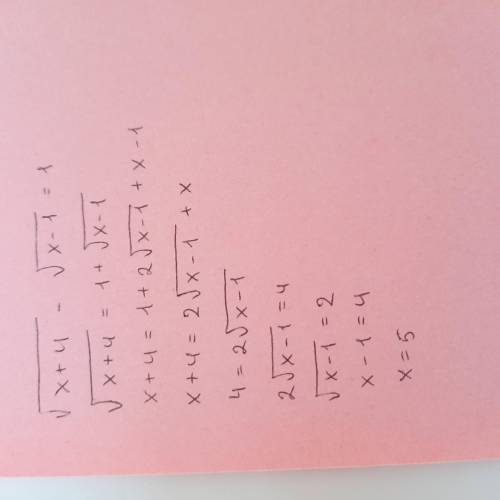 √(x+4) - √(x-1) = 1
√(x+4) = 1+√(x-1)
x+4 = 1+2√(x-1) + x-1
x+4 = 2√(x-1) + x
4 = 2√(x-1)
2√(x-1) = 4
√(x-1) = 2
x-1 = 4
x = 5